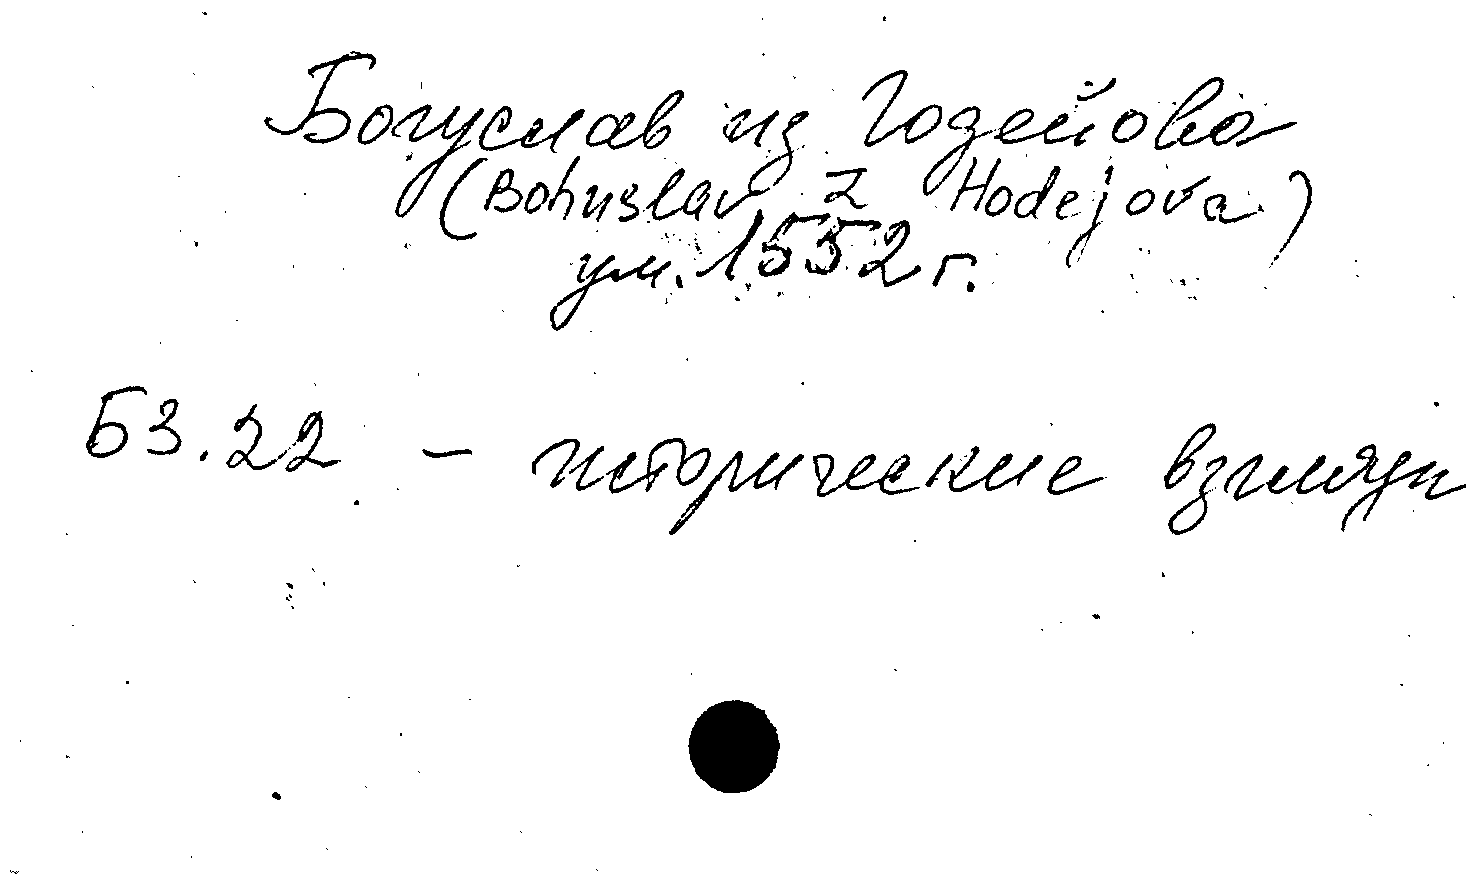 Богуслав из Годейова
(Bohuslav z Hodejova)
ум. 1552 г.
Б3.22 - исторические взгляды